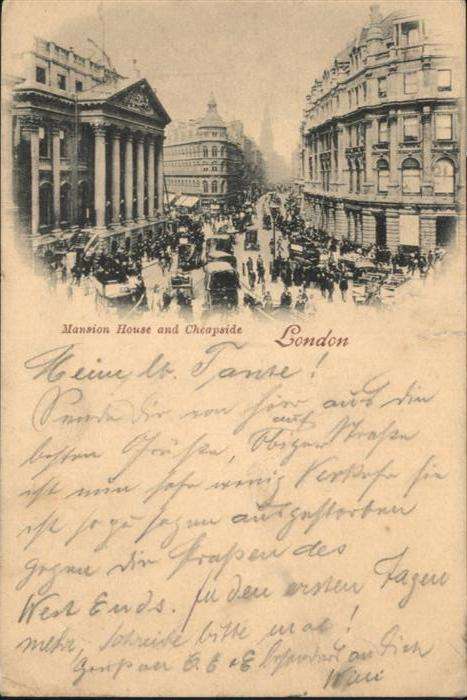 Mansion House and Cheapside London
Meine lb. Tante!
Sende Dir von hier aus die
besten Grüße, auf obiger Straße
ist nun sehr wenig Verkehr sie
ist so zu sagen ausgestorben
gegen die Straßen des
West Ends. In den ersten Tagen
mehr, schreibe bitte mal!
an Dich